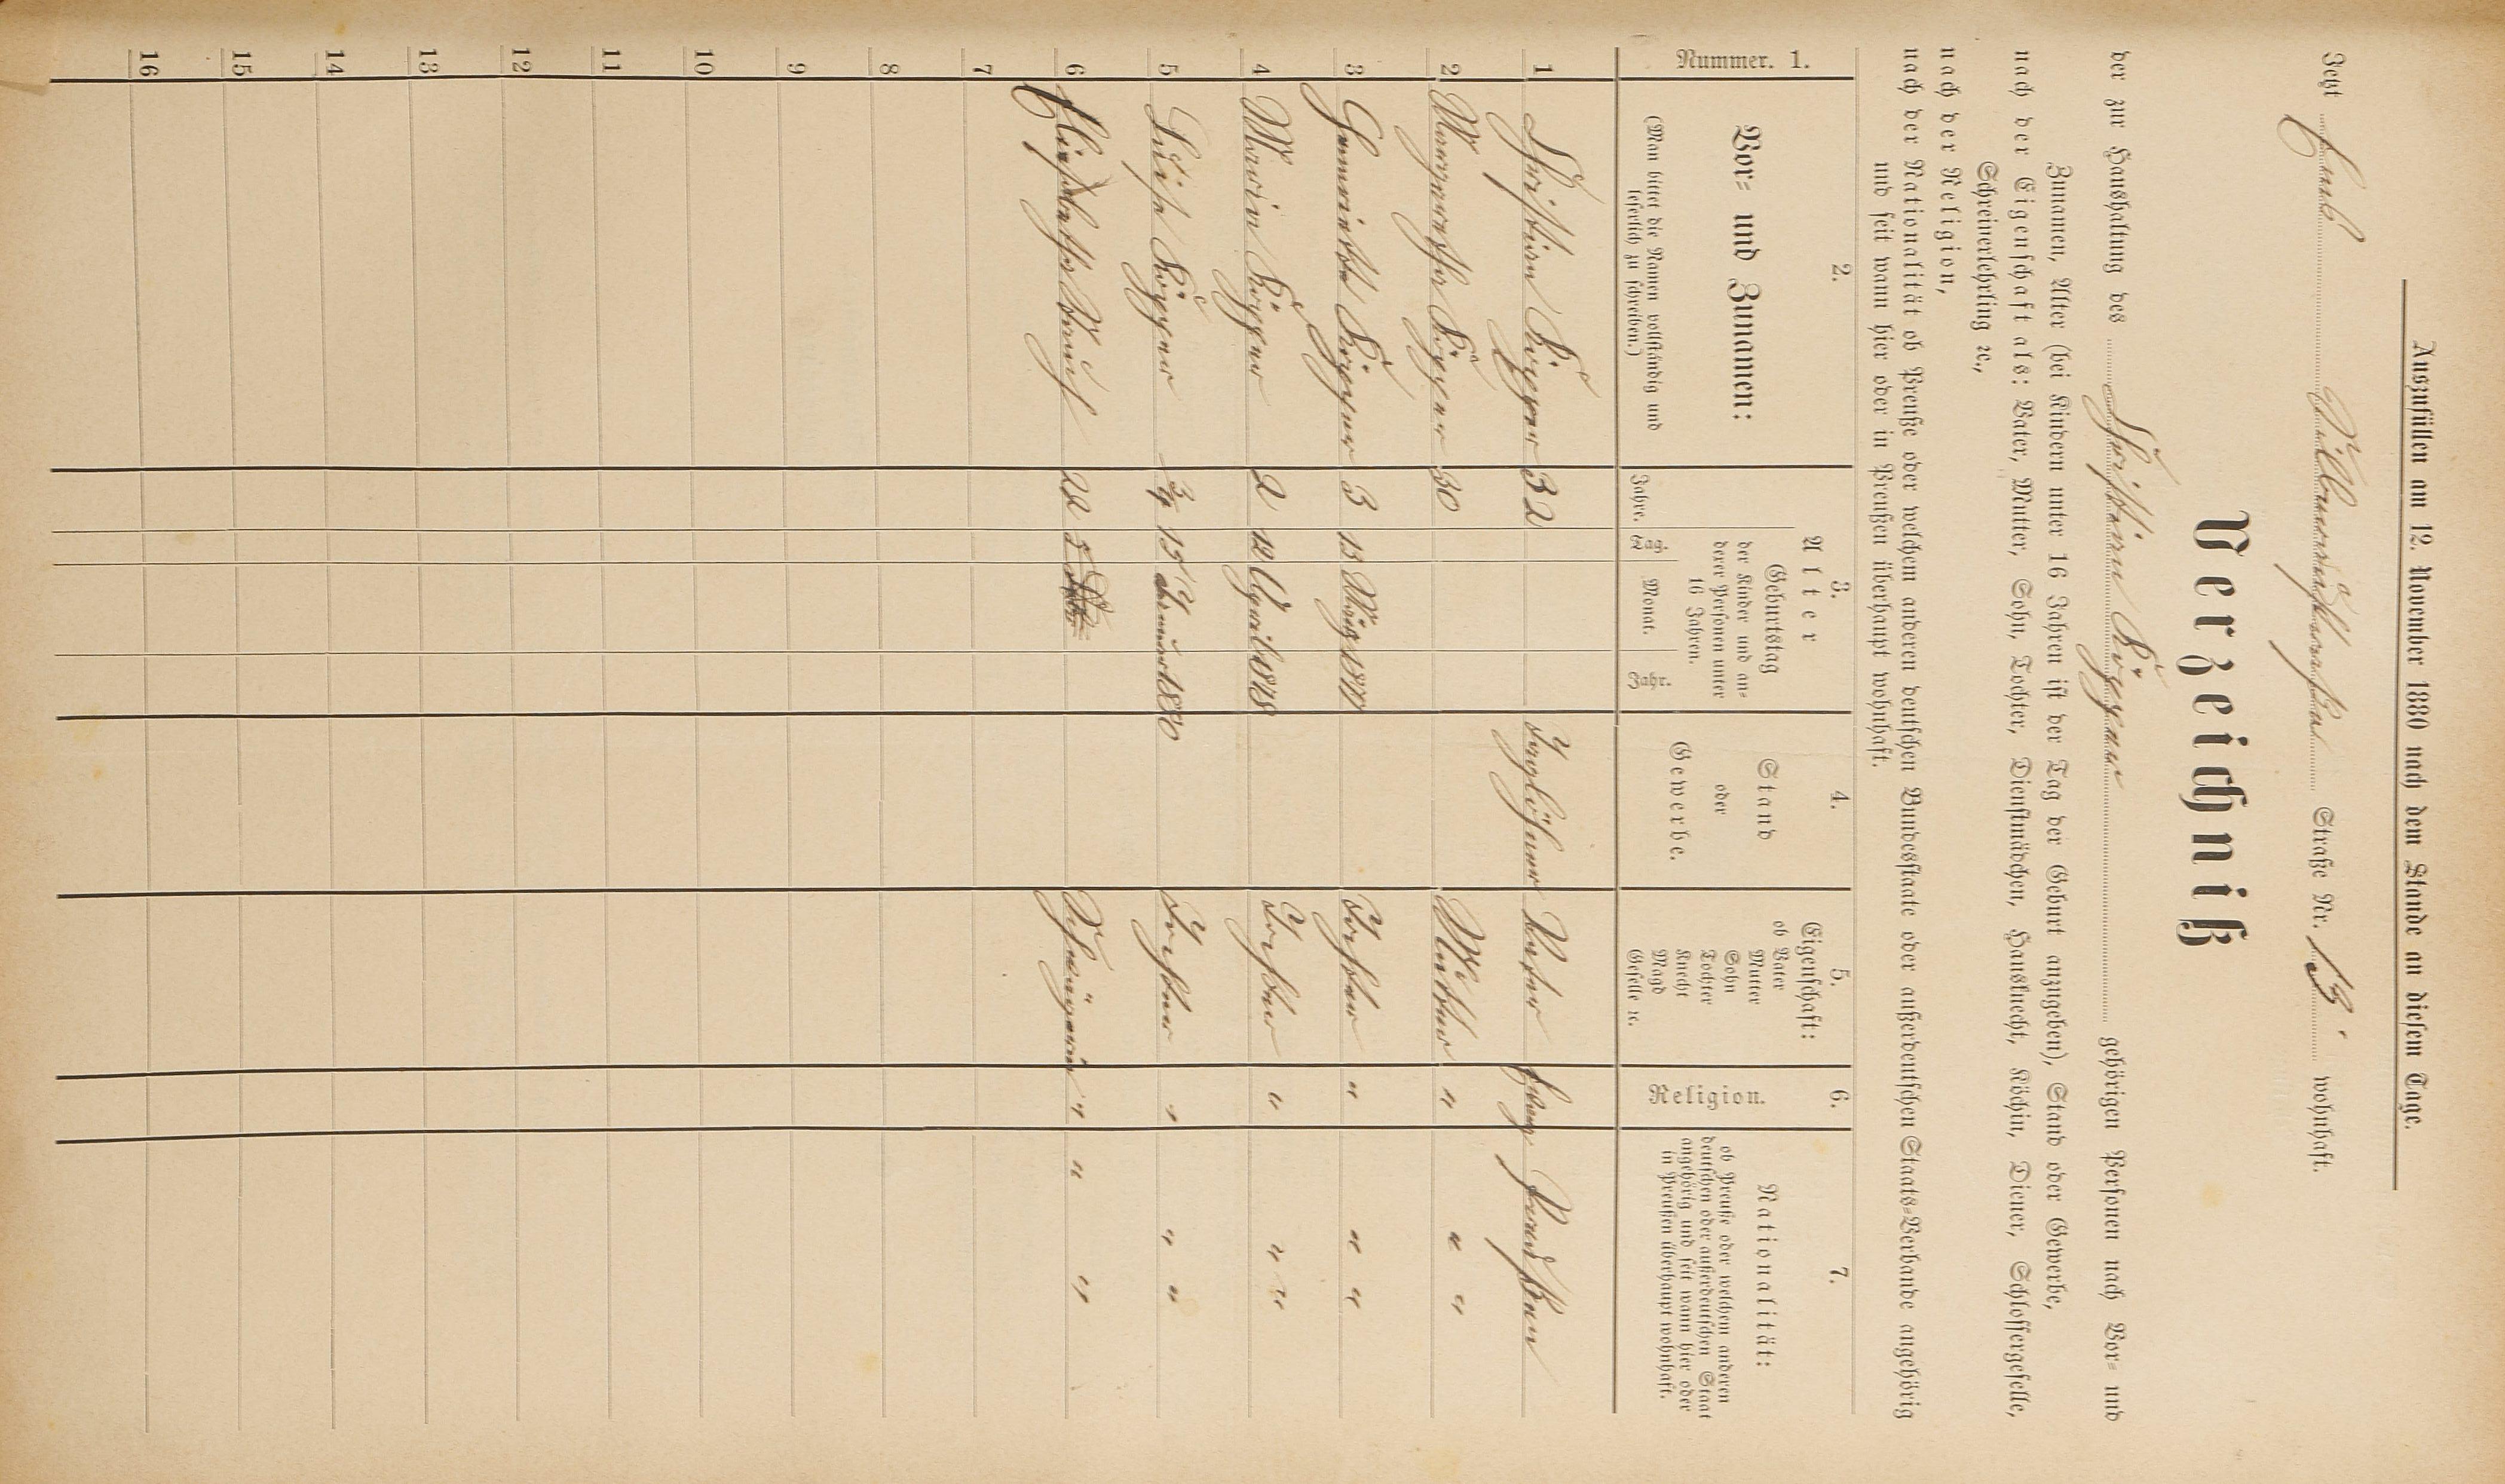 Auszufüllen am 12. November 1880 nach dem Stande an diesem Tage.
Jetzt Straße Nr. 13. wohnhaft.
Verzeichniß
der zur Haushaltung des Christian Küpper gehörigen Personen nach Vor- und
Zunamen, Alter (bei Kindern unter 16 Jahren ist der Tag der Geburt anzugeben), Stand oder Gewerbe,
nach der Eigenschaft als: Vater, Mutter, Sohn, Tochter, Dienstmädchen, Hausknecht, Köchin, Diener, Schlossergeselle,
Schreinerlehrling ꝛc.,
nach der Religion,
nach der Nationalität ob Preuße oder welchem anderen deutschen Bundesstaate oder außerdeutschen Staats-Verbande angehörig
und seit wann hier oder in Preußen überhaupt wohnhaft.
Nummer. 1.
2.
Vor- und Zunamen:
(Man bittet die Namen vollständig und
leserlich zu schreiben.)
3.
Alter
Geburtstag
der Kinder und an-
derer Personen unter
16 Jahren.
Jahre. Tag. Monat. Jahr.
4.
Stand
oder
Gewerbe.
5.
Eigenschaft:
ob Vater
Mutter
Sohn
Tochter
Knecht
Magd
Geselle ꝛc.
6.
Religion.
7.
Nationalität:
ob Preuße oder welchem anderen
deutschen oder außerdeutschen Staat
angehörig und seit wann hier oder
in Preußen überhaupt wohnhaft.
1 Christian 32 Taglöhner Vater Evang Preußen
2 Margarethe 30 Mutter " " "
3 Henriette 3 13 1877 Tochter " " "
4 Maria 2 12 April 1878 Tochter " " "
5 Luise 3/4 15 Januar 1880 Tochter " " "
6 Elisabetha 22 Schwägerin " " "
7
8
9
10
11
12
13
14
15
16